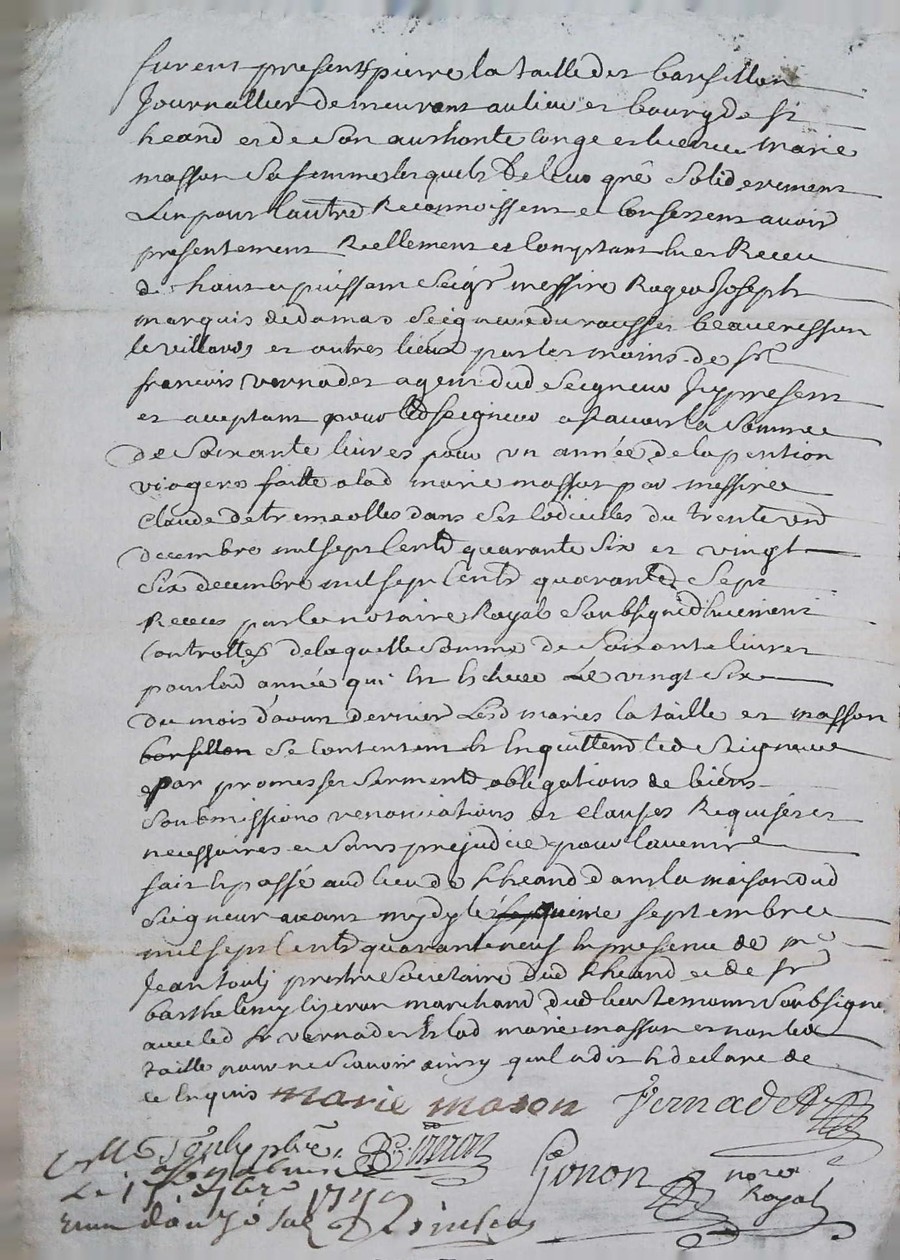 furent presents pierre la taille dit barsillon
Journallier demeurant au lieu et bourg de St
heand et de son authorité congé et licence marie
masson sa femme lesquels de leur gré solidairement
Lun pour lautre Reconnoissent et confessent avoir
presentement Reellement et comptant heu et Receu
de haut et puissant Seigr messire Roger Joseph
marquis de damas Seigneur du rousset beauvresson
le villars, et autres lieux par les mains de sr
francois vernadet agent dud Seigneur Jcy present
et acceptant pour led seigneur a scavoir la somme
de Soixante livres pour un année de la pention
viagere faitte a lad marie masson par messire
Claude de tremeolles dans ses codicilles du trente un
decembre mil sept Cents quarante Six et vingt
Six decembre mil sept Cents quarante Sept
Recees par le notaire Royal Soubsigné duement
Controlles de laquelle somme de Soixante livres
pour lad année qui est echuee Le vingt Six
du mois daout dernier Lesd maries la taille et masson
barsillon se contentent et En quittent led Seigneur
par promesses serments obligations de biens
Soubmissions renonciations et clauses Requises et
necessaires et sans prejudice pour lavenir
fait et passé aud lieu de St heand dans la maison dud
Seigneur avant mydy le septembre
mil sept Cents quarante neuf En presence de mre
Jean prestre Societaire dud St heand et de sr
barthelemy marchand dud lieu temoins Soubsignes
avec led Sr vernadet et lad marie masson et non led
taille pour ne scavoir ainsy quil a dit et declare de
ce Enquis marie mason Vernadet
ptre
Gonon nore
Royal
Le 1749